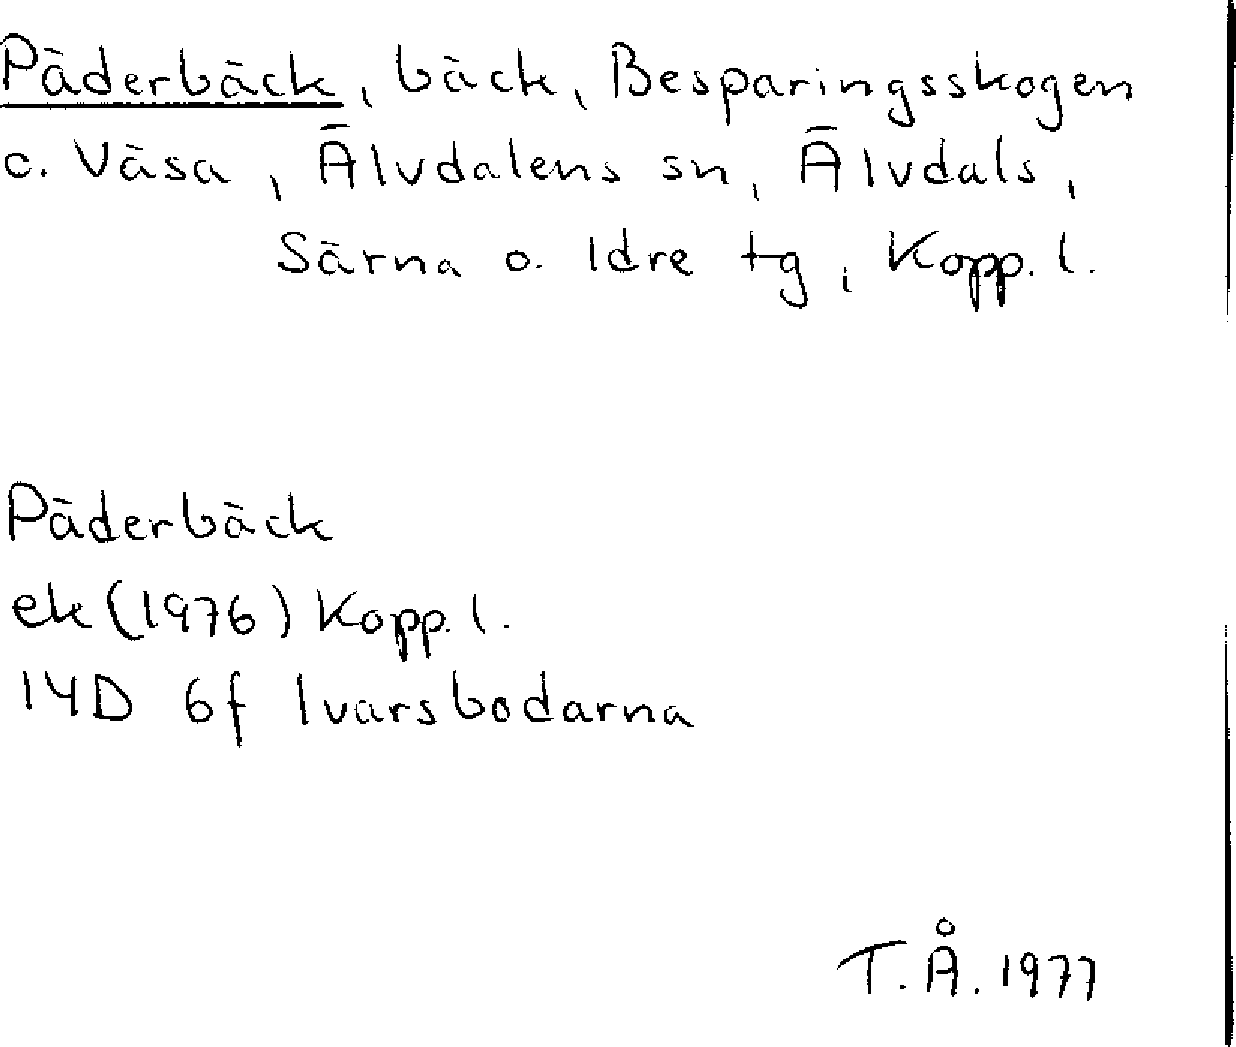 Päderbäck, bäck, Besparingsskogen
c. Väsa, Älvdalens sn, Älvdals,
Särna o. Idre tg, Kopp. l.
Päderbäck
ek (1976) Kopp. l.
14D 6f Ivarsbodarna
T. Å. 1977